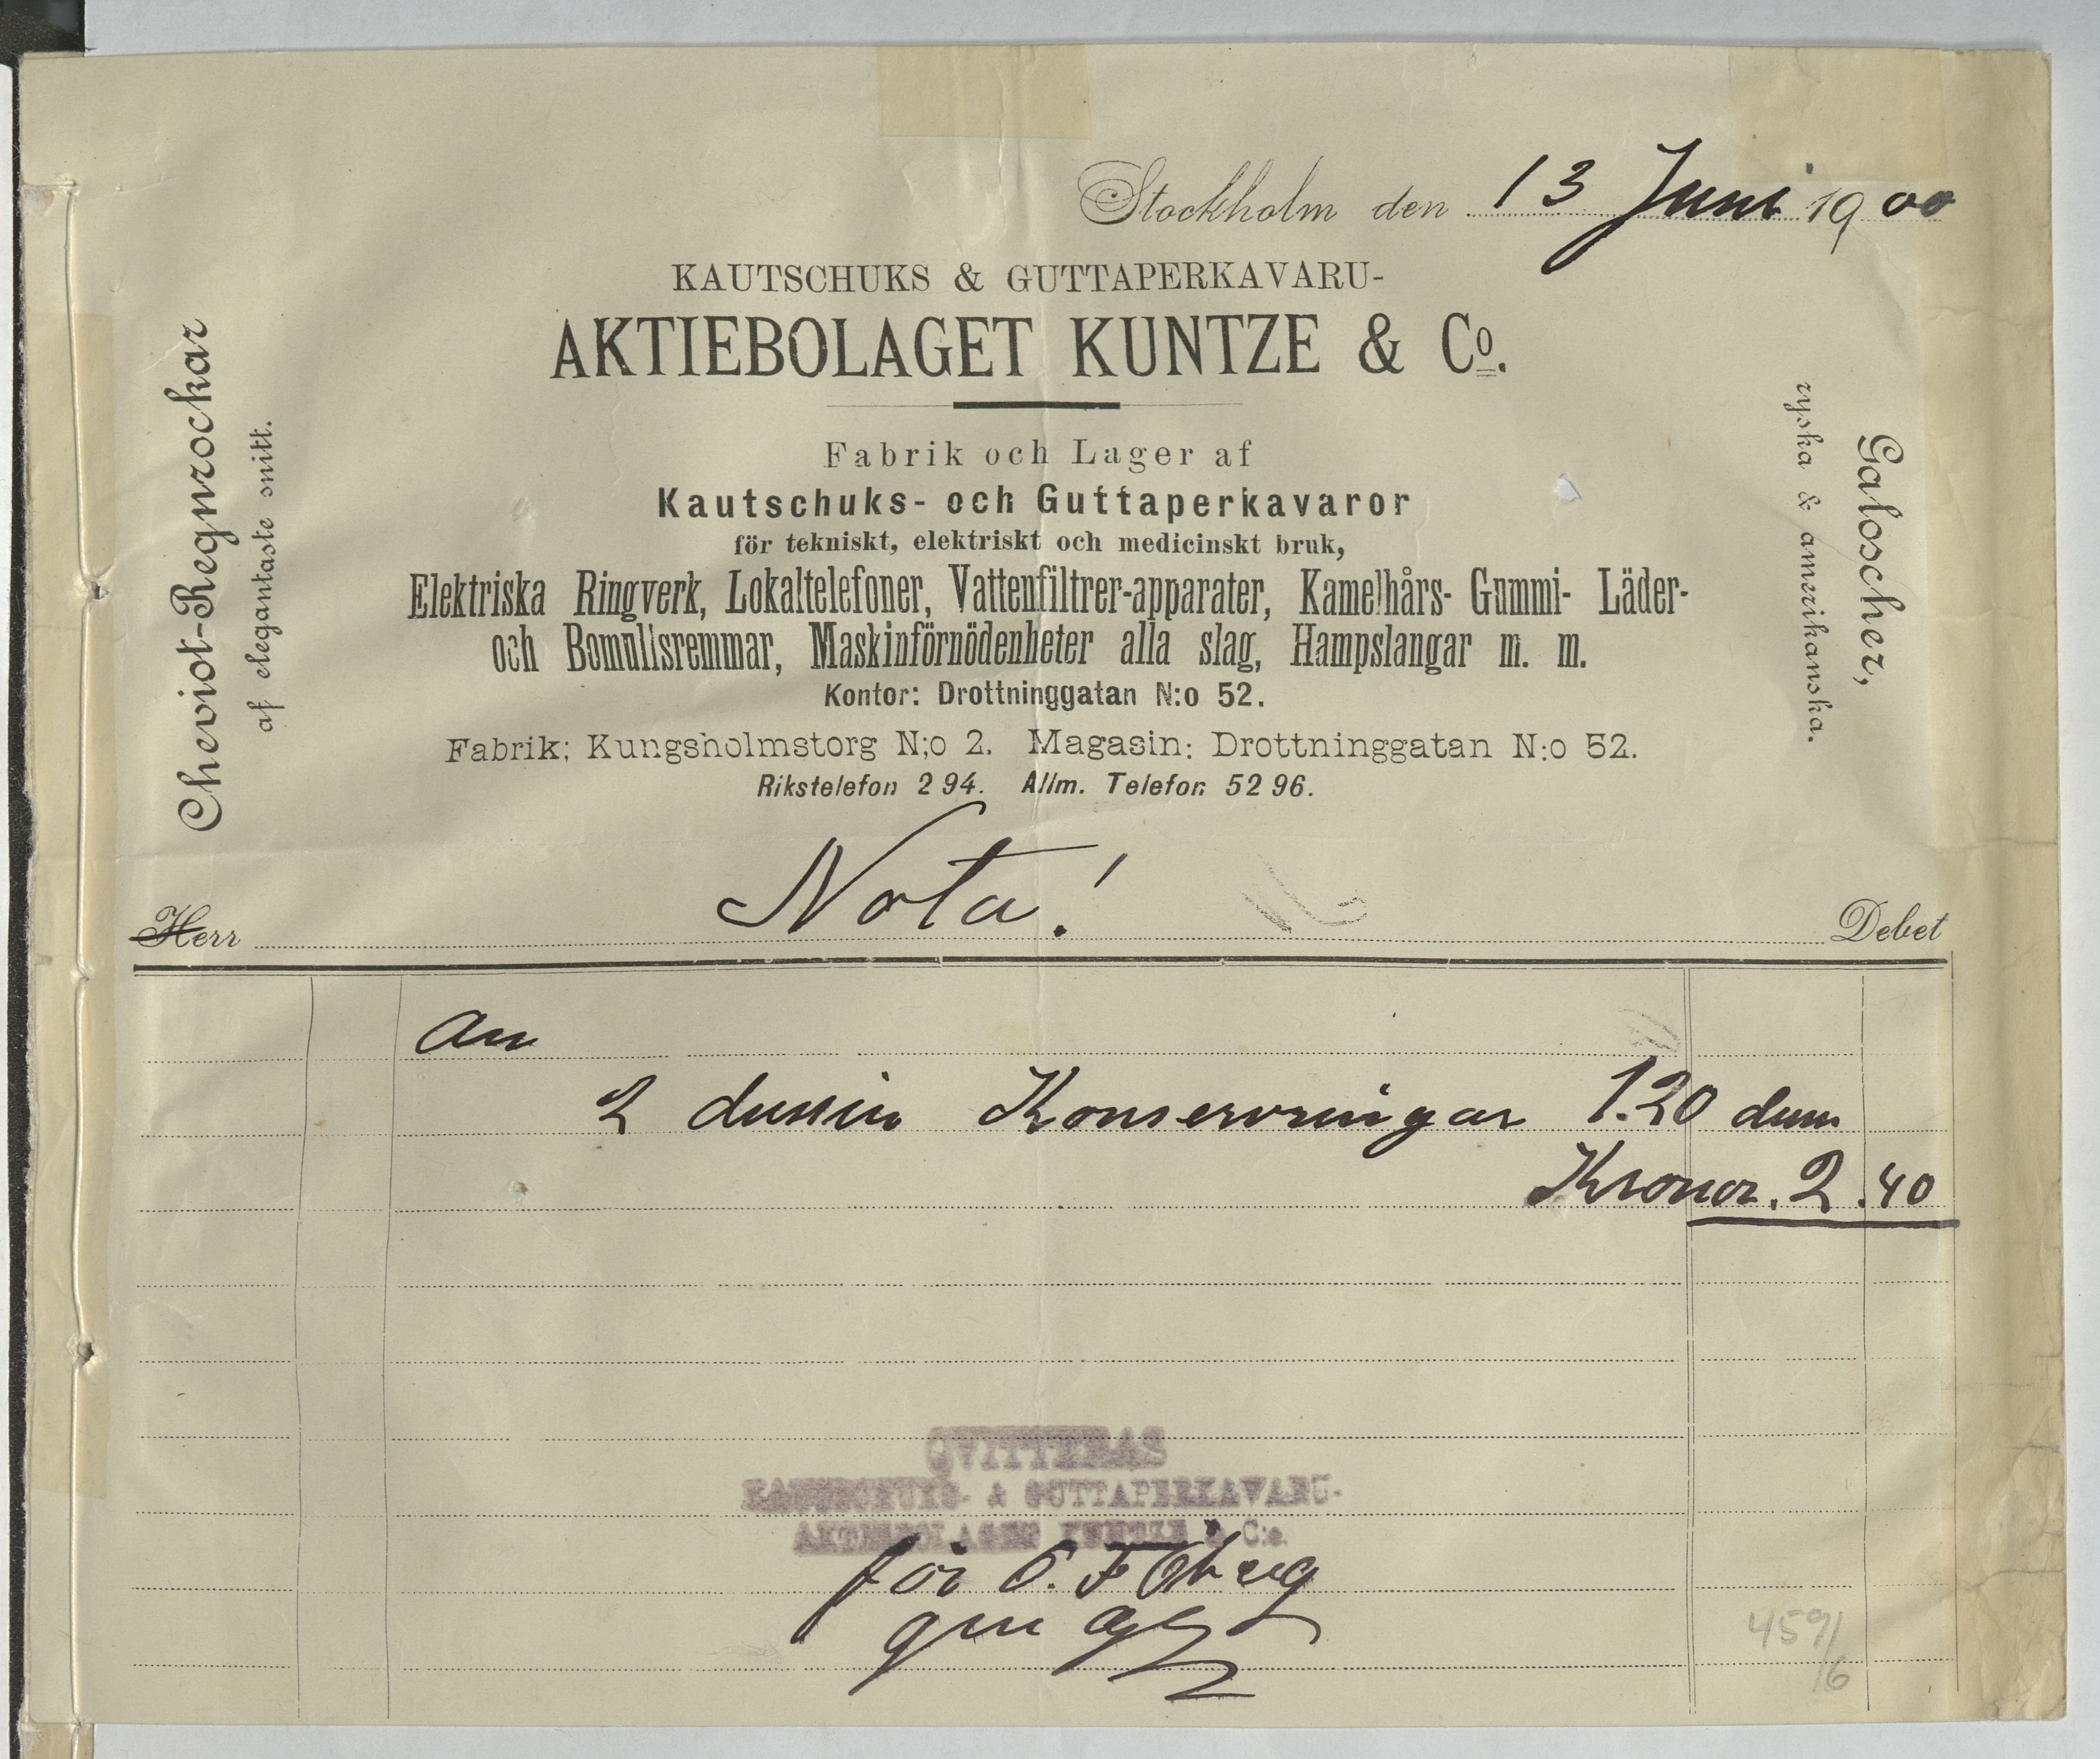 Stockholm den 13 Juni 1900
KAUTSCHUKS & GUTTAPERKAVARU-
AKTIEBOLAGET KUNTZE & Co.
Fabrik och Lager af
Kautschuks- och Guttaperkavaror
för tekniskt, elektriskt och medicinskt bruk,
Elektriska Ringverk, Lokaltelefoner, Vattenfiltrer-apparater, Kamelhårs- Gummi- Läder-
och Bomullsremmar, Maskinförnödenheter alla slag, Hampslangar m. m.
Kontor: Drottninggatan N:o 52.
Fabrik; Kungsholmstorg N;o 2. Magasin: Drottninggatan N:o 52.
Rikstelefon 2 94. Allm. Telefon 52 96.
Cheviot-Regnrockar
af elegantaste snitt.
Galoscher,
ryska & amerikanska.
Nota!
Herr Debet
an
2 dussin Konservringar 1.20 duss
Kronor. 2.40
QVITTERAS
KAUTSCHUKS- & GUTTAPERKAVARU-
AKTIEBOLAGET KUNTZE & C:o.
för C. F Öberg
459/6